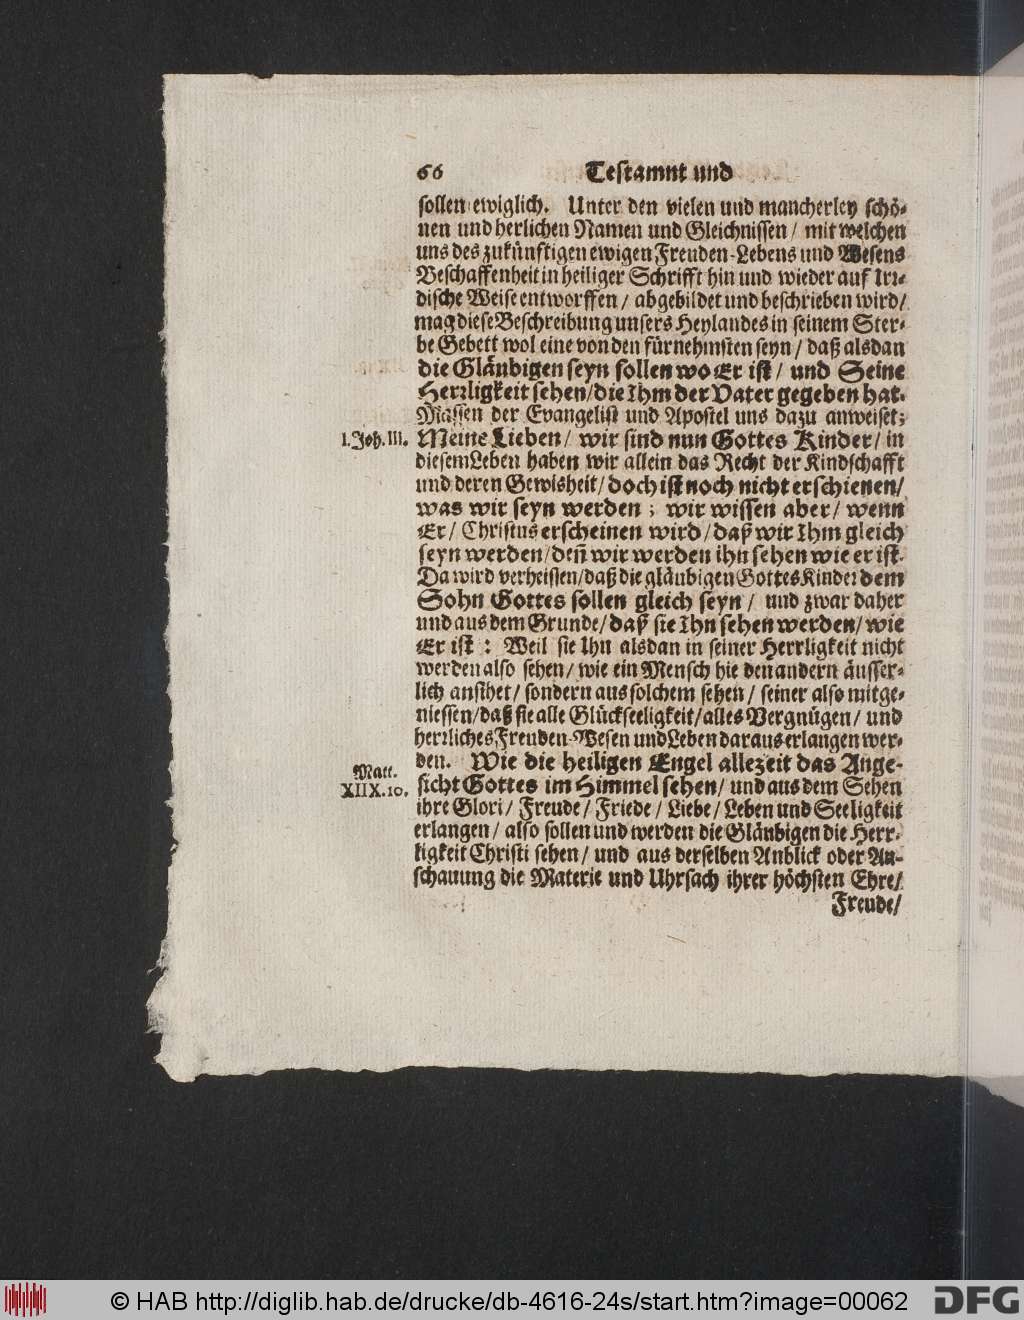 66 Testamnt und
sollen ewiglich. Unter den vielen und mancherley schö-
nen und herlichen Namen und Gleichnissen / mit welchen
uns des zukünftigen ewigen Freuden-Lebens und Wesens
Beschaffenheit in heiliger Schrifft hin und wieder auf Irr-
dische Weise entworffen / abgebildet und beschrieben wird /
mag diese Beschreibung unsers Heylandes in seinem Ster-
be Gebett wol eine von den fürnehmsten seyn / daß alsdan
die Gläubigen seyn sollen wo Er ist / und Seine
Herrligkeit sehen / die Ihm der Vater gegeben hat.
Mässen der Evangelist und Apostel uns dazu anweiset;
I. Joh. III. Meine Lieben / wir sind nun Gottes Kinder / in
diesem Leben haben wir allein das Recht der Kindschafft
und deren Gewisheit / doch ist noch nicht erschienen /
was wir seyn werden ; wir wissen aber / wenn
Er / Christus erscheinen wird / daß wir Ihm gleich
seyn werden / deñ wir werden ihn sehen wie er ist.
Da wird verheissen / daß die gläubigen Gottes Kinder dem
Sohn Gottes sollen gleich seyn / und zwar daher
und aus dem Grunde / daß sie Ihn sehen werden / wie
Er ist : Weil sie Ihn alsdan in seiner Herrligkeit nicht
werden also sehen / wie ein Mensch hie den andern äusser-
lich ansihet / sondern aus solchem sehen / seiner also mitge-
niessen / daß sie alle Glückseeligkeit / alles Vergnügen / und
herrliches Freuden-Wesen und Leben daraus erlangen wer-
den. Wie die heiligen Engel allezeit das Ange-
Matt.
XIIX. 10. sicht Gottes im Himmel sehen / und aus dem Sehen
ihre Glori / Freude / Friede / Liebe / Leben und Seeligkeit
erlangen / also sollen und werden die Gläubigen die Herr-
ligkeit Christi sehen / und aus derselben Anblick oder An-
schauung die Materie und Uhrsach ihrer höchsten Ehre /
Freude /
© HAB http://diglib.hab.de/drucke/db-4616-24s/start.htm?image=00062
DFG